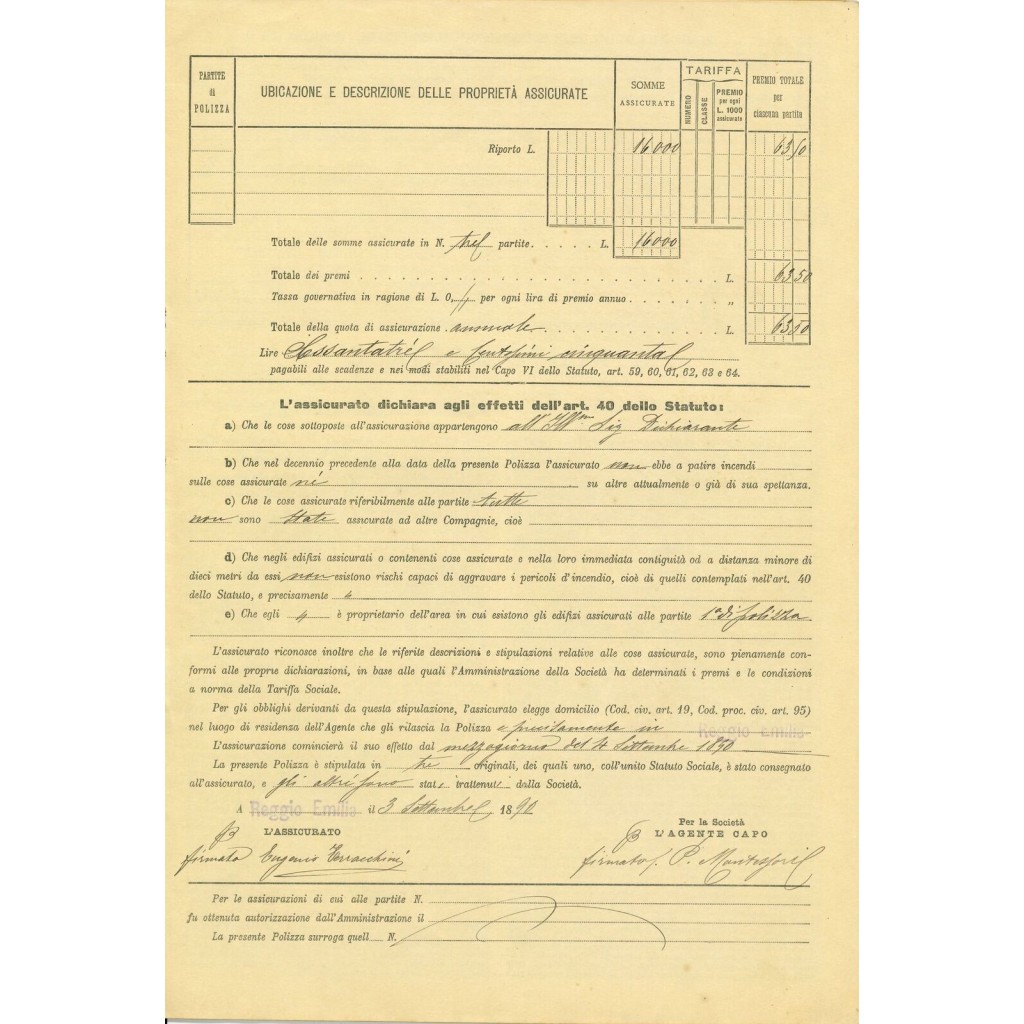 PARTITE di POLIZZA
UBICAZIONE E DESCRIZIONE DELLE PROPRIETÀ ASSICURATE
SOMME ASSICURATE
TARIFFA
NUMERO
CLASSE
PREMIO per ogni L. 1000 assicurate
PREMIO TOTALE per ciascuna partita
Riporto L. 16000 63 50
Totale delle somme assicurate in N. tre partite . . . . . L. 16000
Totale dei premi . . . . . L. 63 50
Tassa governativa in ragione di L. 0, per ogni lira di premio annuo . . . . . „
Totale della quota di assicurazione annuale L. 63 50
Lire Sessantatré e Centesimi cinquanta
pagabili alle scadenze e nei modi stabiliti nel Capo VI dello Statuto, art. 59, 60, 61, 62, 63 e 64.
L'assicurato dichiara agli effetti dell'art. 40 dello Statuto:
a) Che le cose sottoposte all'assicurazione appartengono all' Ill.mo Sig Dichiarante
b) Che nel decennio precedente alla data della presente Polizza l'assicurato non ebbe a patire incendi
sulle cose assicurate né su altre attualmente o già di sua spettanza.
c) Che le cose assicurate riferibilmente alle partite tutte
non sono state assicurate ad altre Compagnie, cioè
d) Che negli edifizi assicurati o contenenti cose assicurate e nella loro immediata contiguità od a distanza minore di
dieci metri da essi non esistono rischi capaci di aggravare i pericoli d'incendio, cioè di quelli contemplati nell'art. 40
dello Statuto, e precisamente „
e) Che egli „ è proprietario dell'area in cui esistono gli edifizi assicurati alle partite 1a di polizza.
L'assicurato riconosce inoltre che le riferite descrizioni e stipulazioni relative alle cose assicurate, sono pienamente con-
formi alle proprie dichiarazioni, in base alle quali l'Amministrazione della Società ha determinati i premi e le condizioni
a norma della Tariffa Sociale.
Per gli obblighi derivanti da questa stipulazione, l'assicurato elegge domicilio (Cod. civ. art. 19, Cod. proc. civ. art. 95)
nel luogo di residenza dell'Agente che gli rilascia la Polizza e precisamente in Reggio Emilia
L'assicurazione comincierà il suo effetto dal mezzogiorno del 4 Settembre 1890
La presente Polizza è stipulata in tre originali, dei quali uno, coll'unito Statuto Sociale, è stato consegnato
all'assicurato, e gli altri sono stati trattenuti dalla Società.
A Reggio Emilia il 3 Settembre 1890
L'ASSICURATO
Per la Società
L'AGENTE CAPO
firmato Eugenio Terrachini
firmato P. Montessori
Per le assicurazioni di cui alle partite N.
fu ottenuta autorizzazione dall'Amministrazione il
La presente Polizza surroga quell N.